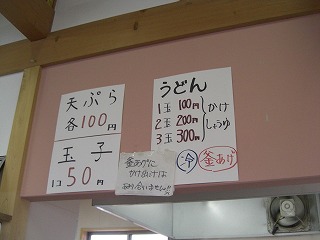 天ぷら
各100円
玉子
1コ50円
うどん
1玉100円
2玉200円
3玉300円
かけ
しょうゆ
冷
釜あげ
釜あげに
かけ出汁は